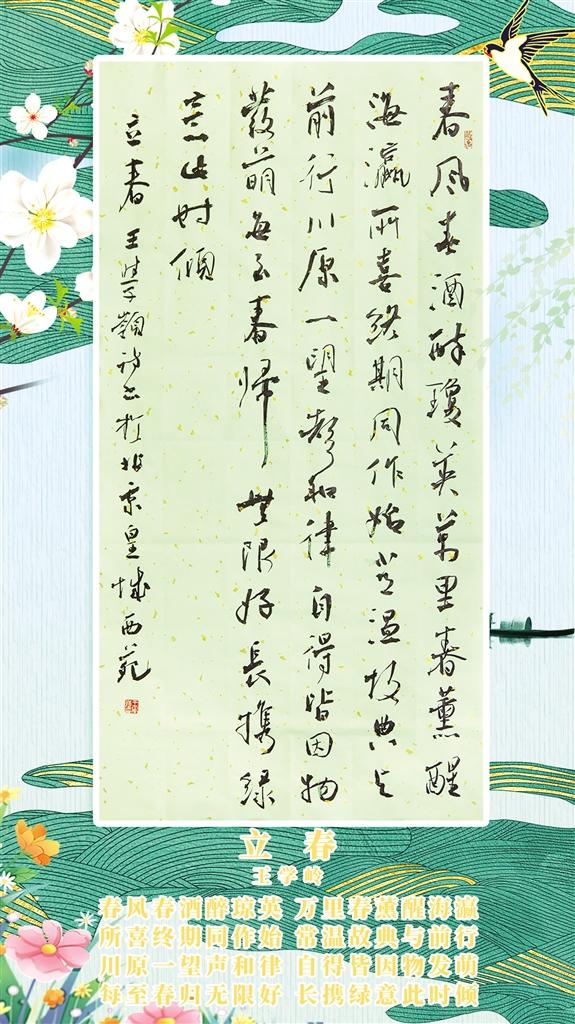 春風春酒醉瓊英萬里春薰醒
海瀛所喜終期同作始常溫故典与
前行川原一望聲和律自得皆因物
發萌每至春歸無限好長攜綠
意此時傾
立春王學嶺詩书於北京皇城西苑
立春
王学岭
春风春酒醉琼英 万里春薰醒海瀛
所喜终期同作始 常温故典与前行
川原一望声和律 自得皆因物发萌
每至春归无限好 长携绿意此时倾